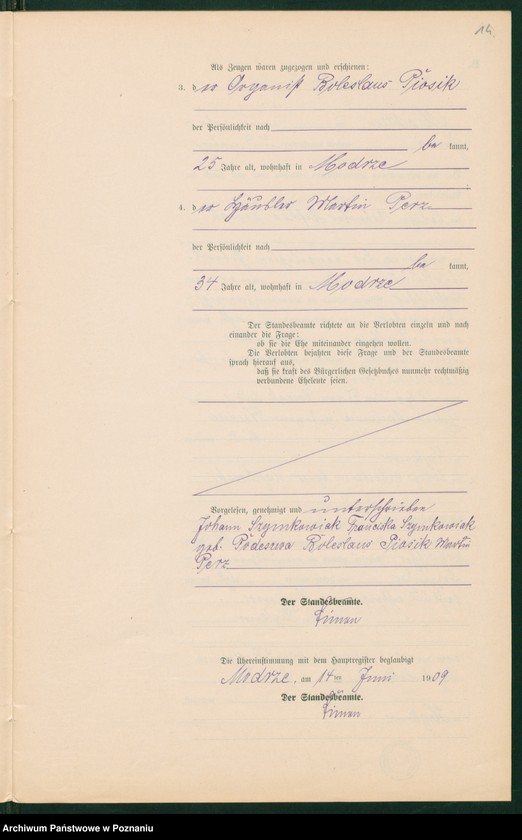 14.
Als Zeugen waren zugezogen und erschienen:
3. der Organist Boleslaus Piosik
der Persönlichkeit nach
be kannt,
25 Jahre alt, wohnhaft in Modrze
4. der Häusler Martin Perz
der Persönlichkeit nach
be kannt,
34 Jahre alt, wohnhaft in Modrze
Der Standesbeamte richtete an die Verlobten einzeln und nach
einander die Frage:
ob sie die Ehe miteinander eingehen wollen.
Die Verlobten bejahten diese Frage und der Standesbeamte
sprach hierauf aus,
daß sie kraft des Bürgerlichen Gesetzbuches nunmehr rechtmäßig
verbundene Eheleute seien.
Vorgelesen, genehmigt und unterschrieben
Johann Szymkowiak Franciska Szymkowiak
geb. Podeszwa Boleslaus Piosik Martin
Perz
Der Standesbeamte.
Die Übereinstimmung mit dem Hauptregister beglaubigt
Modrze, am 14ten Juni 1909
Der Standesbeamte.
Archiwum Państwowe w Poznaniu